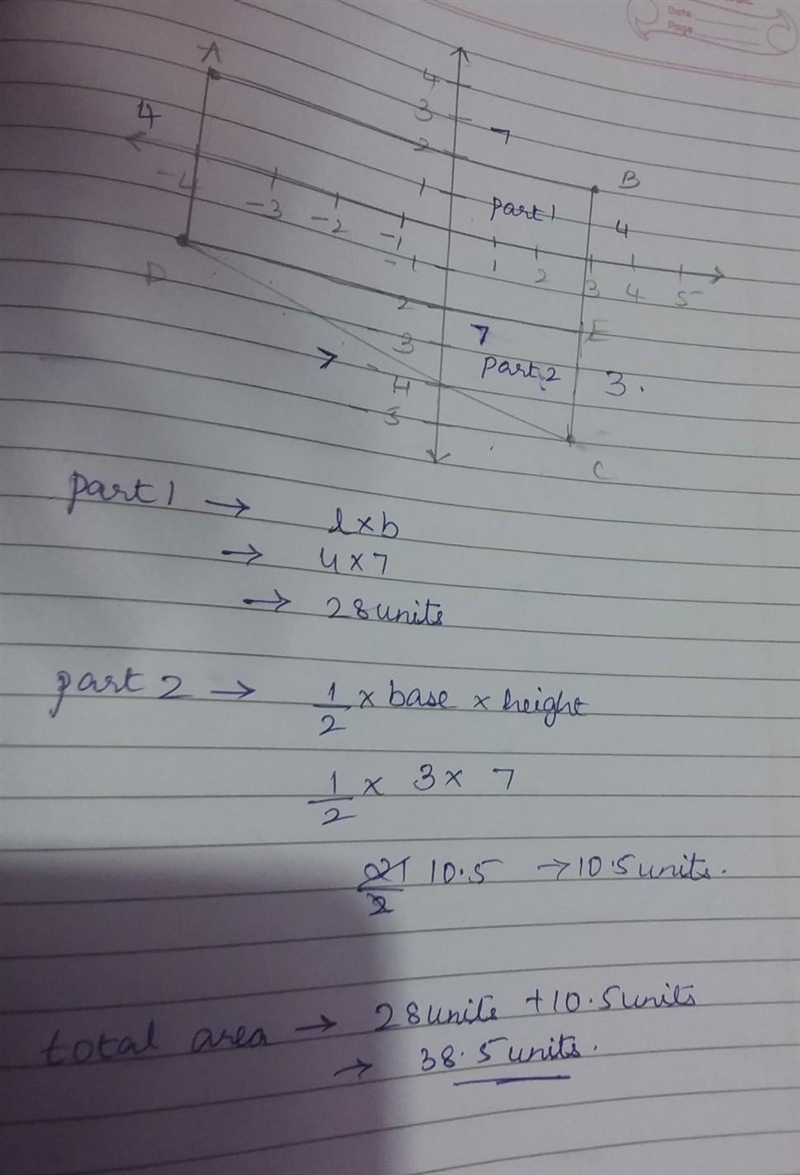 Date
Page
A
4
4
3
7
2
B
1
part 1
4
-4
-3
-2
-1
-1
1
2
3
4
5
D
2
E
3
7
-4
part 2
3.
5
C
part 1 → l x b
→ 4 x 7
→ 28 units
part 2 → 1/2 x base x height
1/2 x 3 x 7
21/2 10.5 → 10.5 units.
total area → 28 units + 10.5 units
→ 38.5 units.